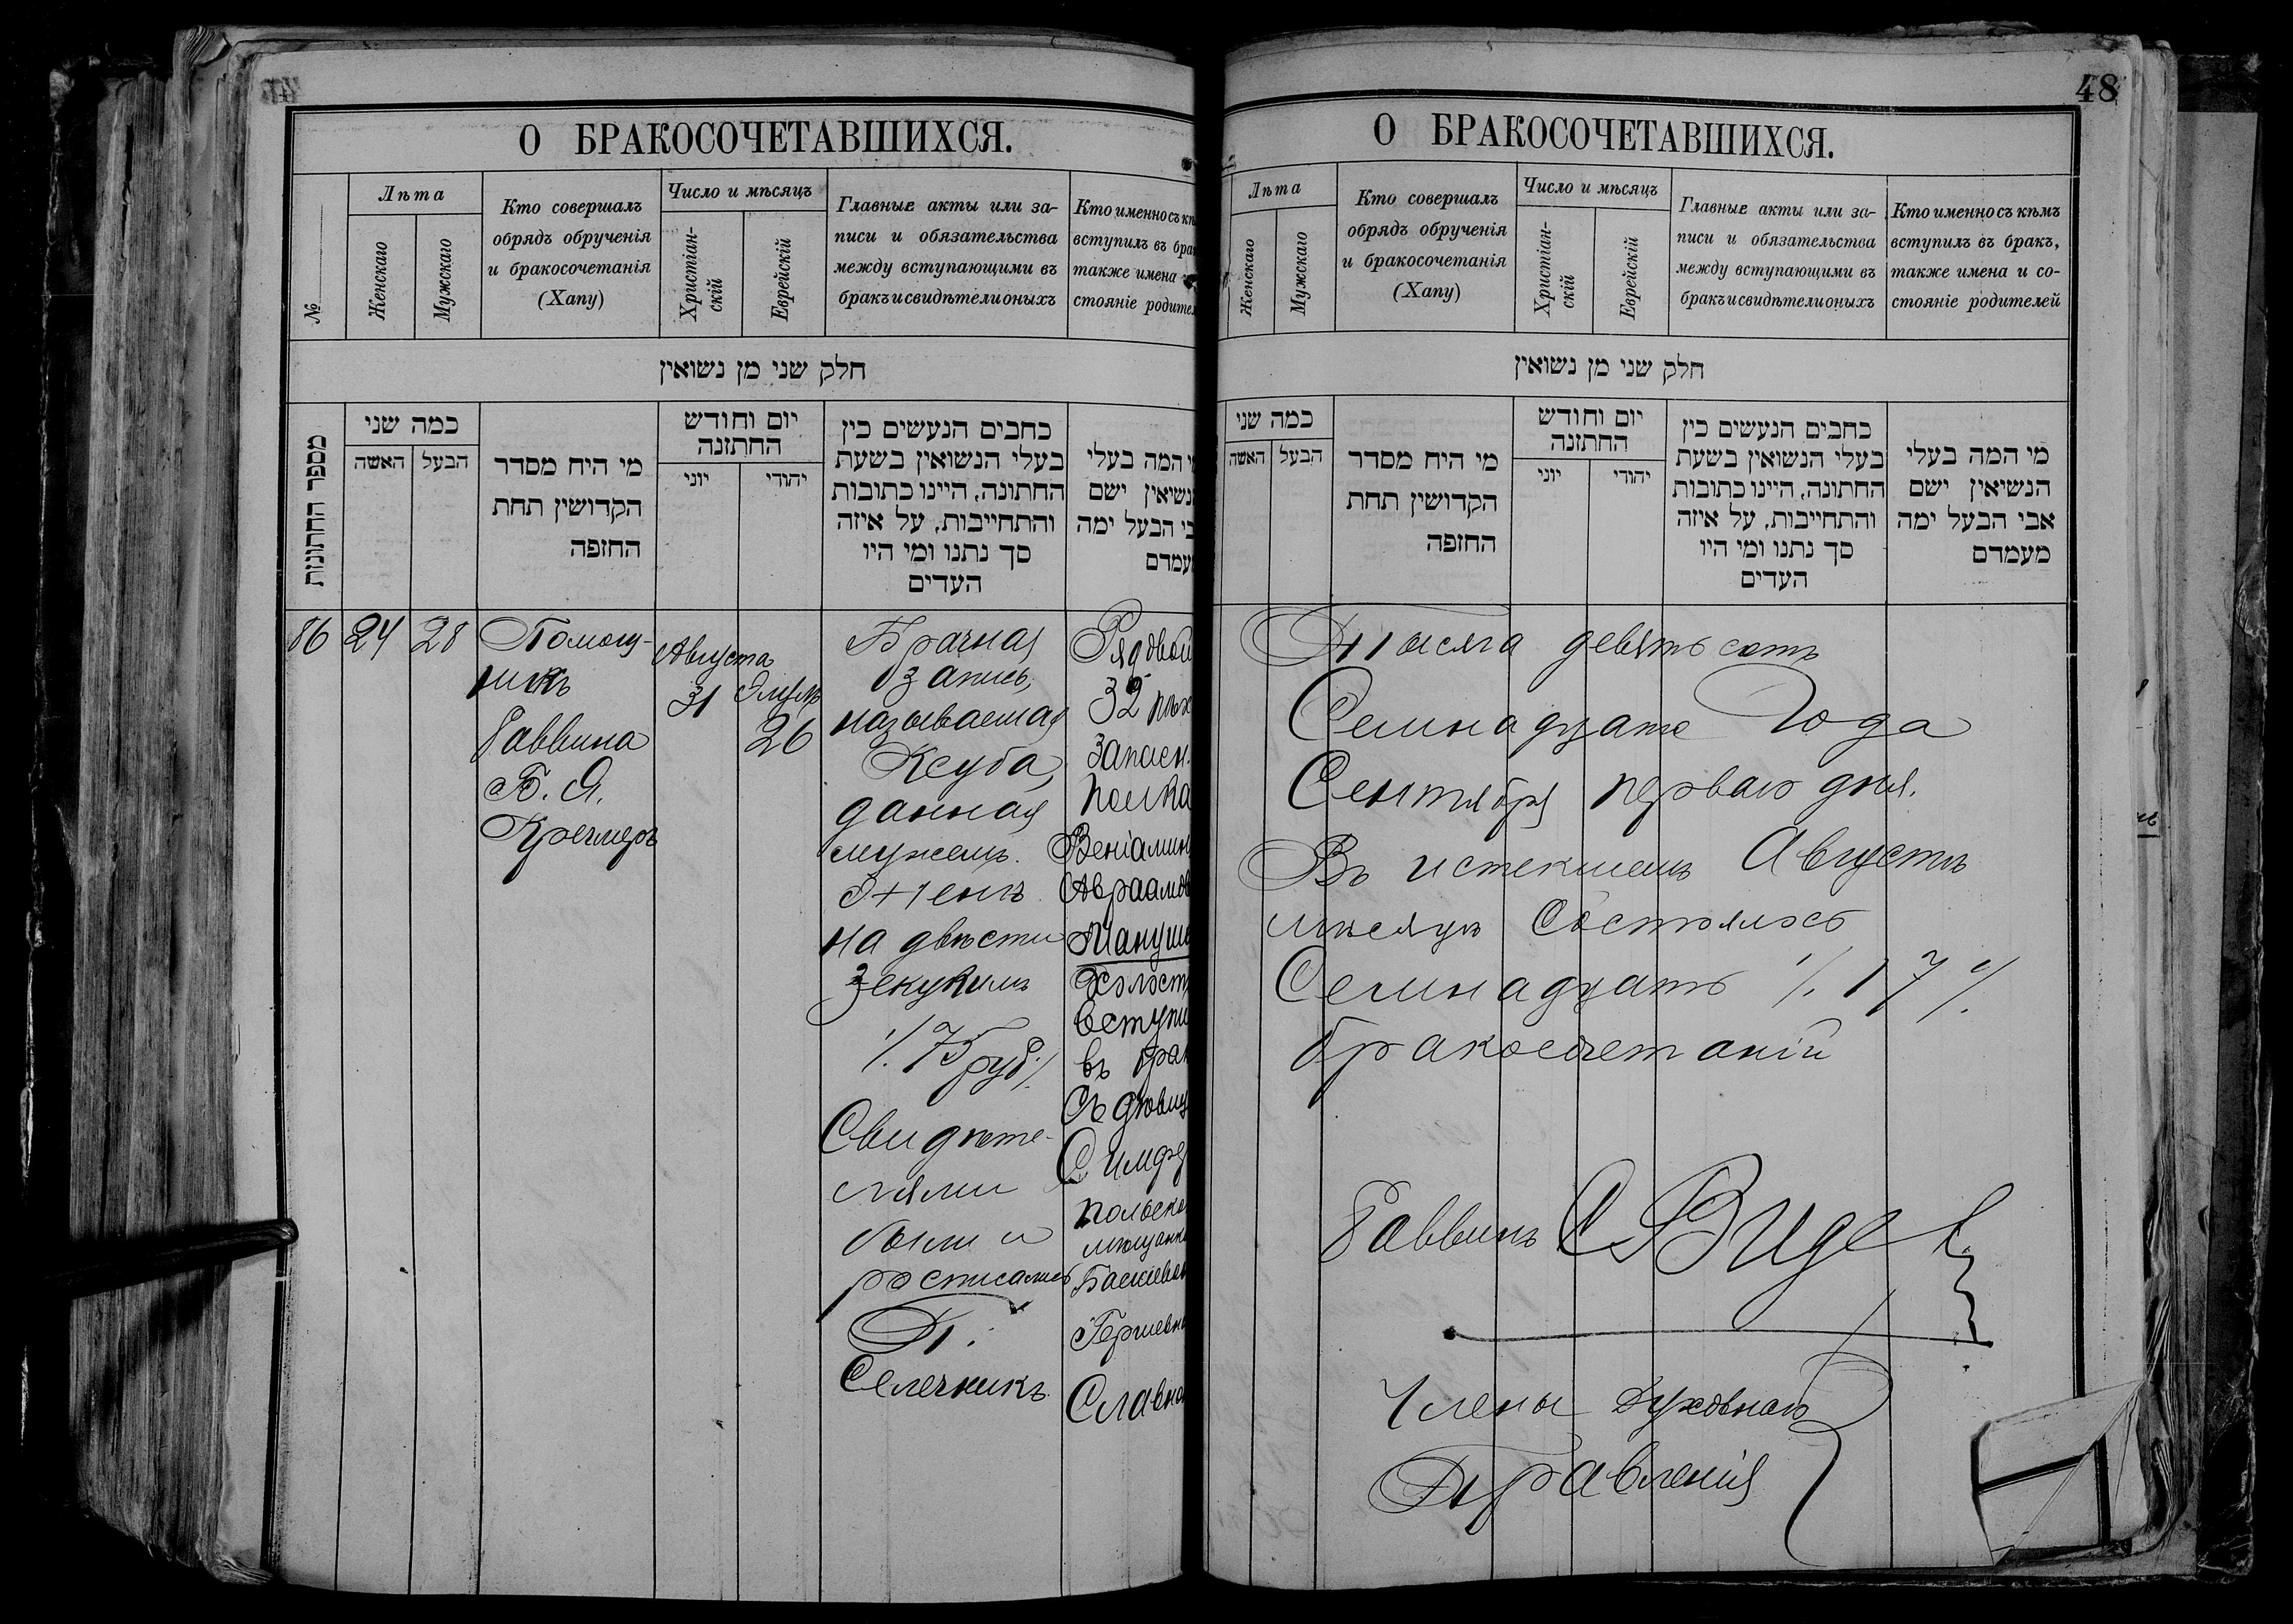 О БРАКОСОЧЕТАВШИХСЯ.
№
Лѣта
Женскаго
Мужскаго
Кто совершалъ
обрядъ обрученія
и бракосочетанія
(Хапу)
Число и мѣсяцъ
Христіан-
скій
Еврейскій
Главные акты или за-
писи и обязательства
между вступающими въ
бракъ и свидѣтели оныхъ
Кто именно съ
вступилъ въ
также имена
стояніе
חלק שני מן נשואין
מספר החתונות
כמה שני
האשה
הבעל
מי היח מסדר
הקדושין תחת
החזפה
יום וחודש
החתזנה
יוני
יהודי
כחבים הנעשים כין
בעלי הנשואין בשעת
החתונה, היינו כתובות
והתחייבות, על איזה
סך נתנו ומי היו
העדים
המה בעלי
ישם
הבעל ימה
86
24
28
Помощ-
никъ
Раввина
Б. Я.
Кречмеръ
Августа
31
Элулъ
26
Брачная
запись,
называемая
Ксуба,
данная
мужемъ
женѣ
на двѣсти
Зекукимъ
/. 75 руб /.
Свидѣте-
лями
были и
росписались
П.
Селечникъ
Рядовой
32 пѣх
Запасн.
полка
Веніамин
Авраамов
Мануше
Холост
вступи
въ бра
Съ дѣвиц
Симфе
польско
мѣщанк
Башево
Гершевн
Славно
48
О БРАКОСОЧЕТАВШИХСЯ.
Лѣта
Женскаго
Мужскаго
Кто совершалъ
обрядъ обрученія
и бракосочетанія
(Хапу)
Число и мѣсяцъ
Христіан-
скій
Еврейскій
Главные акты или за-
писи и обязательства
между вступающими въ
бракъ и свидѣтели оныхъ
Кто именно съ кѣмъ
вступилъ въ бракъ,
также имена и со-
стояніе родителей
חלק שני מן נשואין
כמה שני
האשה
הבעל
מי היח מסדר
הקדושין תחת
החזפה
יום וחודש
החתזנה
יוני
יהודי
כחבים הנעשים כין
בעלי הנשואין בשעת
החתונה, היינו כתובות
והתחייבות, על איזה
סך נתנו ומי היו
העדים
מי המה בעלי
הנשיאין ישם
אבי הבעל ימה
מעמדם
Тысяча девятьсотъ
Семнадцать Года
Сентября перваго дня.
Въ истекшемъ Августѣ
мѣсяцѣ состоялось
Семнадцать /. 17 /.
бракосочетаній
Раввинъ
Члены Духовнаго
Правленія